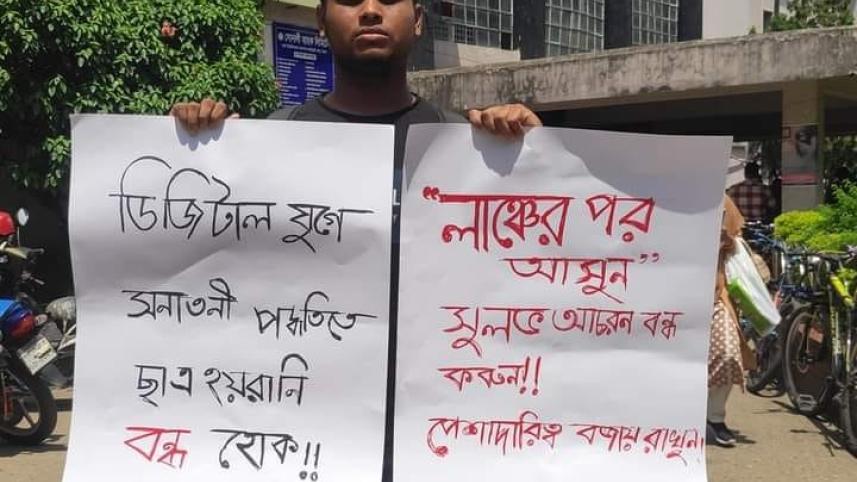 সোনালী ব্যাংক লিমিটেড
ডিজিটাল যুগে
সনাতনী পদ্ধতিতে
ছাত্র হয়রানি
বন্ধ হোক!!
"লাঞ্চের পর
আসুন"
সুলভ আচরন বন্ধ
করুন!!
পেশাদারিত্ব বজায় রাখুন!